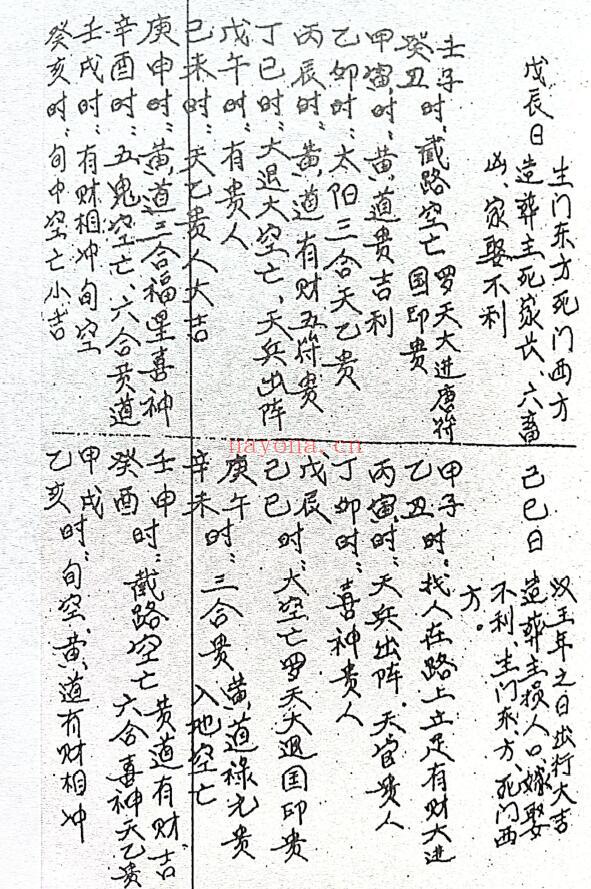 戊辰日
生门东方死门西方
造葬主死家长、六畜
凶、家娶不利
壬子时：截路空亡 罗天大进唐符
癸丑 国印贵
甲寅时：黄道贵吉利
乙卯时：太阳三合天乙贵
丙辰时：黄道有财五符贵
丁巳时：大退大空亡、天兵出阵
戊午时：有贵人
己未时：天乙贵人大吉
庚申时：黄道三合福星喜神
辛酉时：五鬼空亡、六合黄道
壬戌时：有财相冲旬空
癸亥时：旬中空亡小吉
nayona.cn
己巳日
汉王年之日出行大吉
造葬主损人口嫁娶
不利 生门东方、死门西
方。
甲子时：找人在路上立足有财大进
乙丑
丙寅时：天兵出阵、天官贵人
丁卯时：喜神贵人
戊辰时：大空亡罗天大退国印贵
己巳
庚午时：三合贵 黄道禄元贵
辛未 入地空亡
壬申时：截路空亡 黄道有财吉
癸酉 六合喜神天乙贵
甲戌时：旬空、黄道有财相冲
乙亥